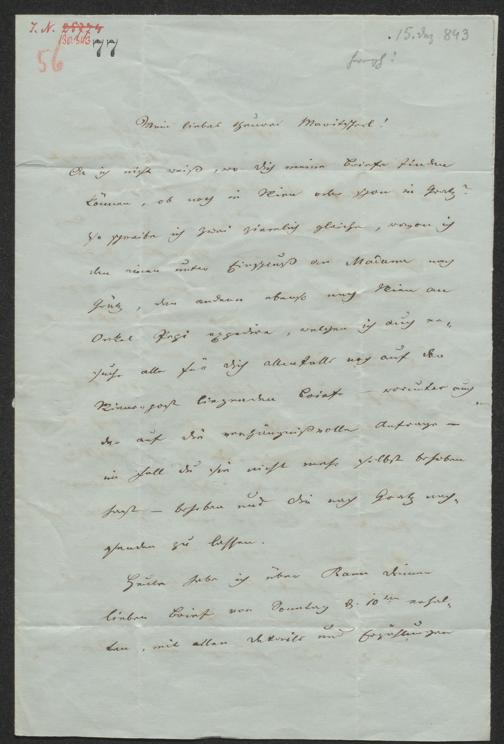 I. N. 28774
130.503
77
56
15. Dez 843
Mein liebes theures Moritzerl!
Da ich nicht weiß, wo dich meine Briefe finden
können, ob noch in Wien oder schon in Gratz?
So schreibe ich zwei ziemlich gleiche, wovon ich
den einen unter Einschluß an Madame nach
Grätz, den andern ebenso nach Wien an
Onkel Pepi expedire, welchen ich auch er¬
suche alle für dich allenfalls noch auf der
Wienerpost liegenden Briefe – worunter auch
der auf die verhängnißvolle Anfrage –
im Fall du sie nicht mehr selbst behoben
hast – beheben und dir nach Gratz nach¬
senden zu lassen.
Heute habe ich über Raan deinen
lieben Brief von Sonntag d. 10ten erhal¬
ten, mit allen Details und Erzählungen